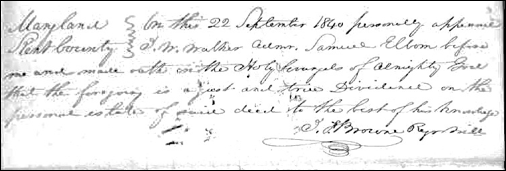 Maryland } On this 22 September 1840 personally appeared
Kent County } T. W. Walker Admr. Samuel Elbon before
me and made oath on the Holy Evangels of Almighty God
that the foregoing is a just and true Dividend on the
personal estate of said decd to the best of his Knowledge
Browne Regr Wills